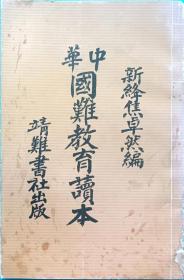 新絳焦卓然編
中華國難教育讀本
靖難書社出版